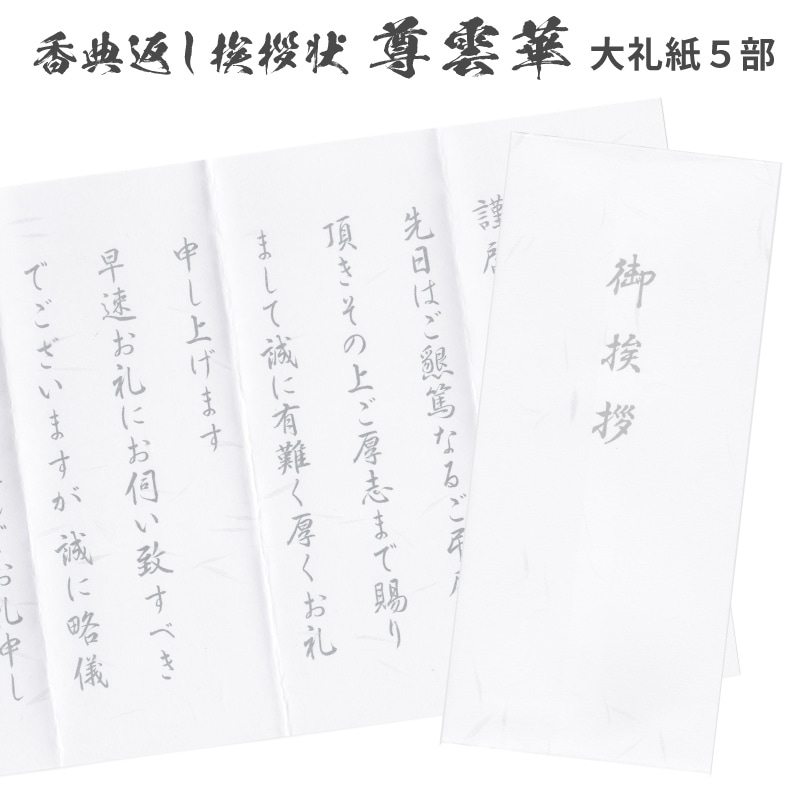 香典返し挨拶状 尊雲華 大礼紙5部
御挨拶
謹啓
先日はご懇篤なるご弔
頂きその上ご厚志まで賜り
まして誠に有難く厚くお礼
申し上げます
早速お礼にお伺い致すべき
でございますが 誠に略儀
お礼申し